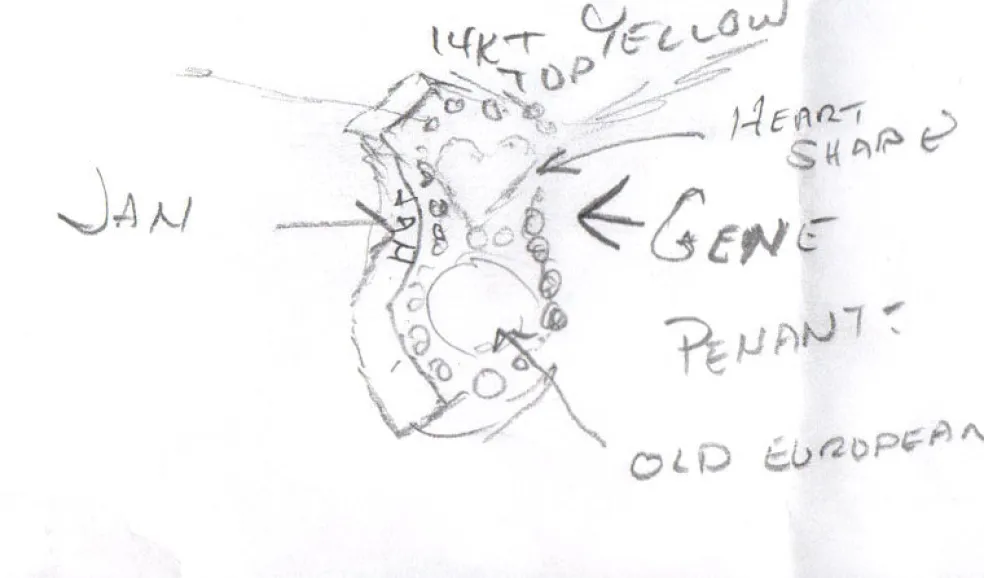 14KT YELLOW
TOP
HEART
SHAPE
JAN
JAN
GENE
PENANT
OLD EUROPEAN